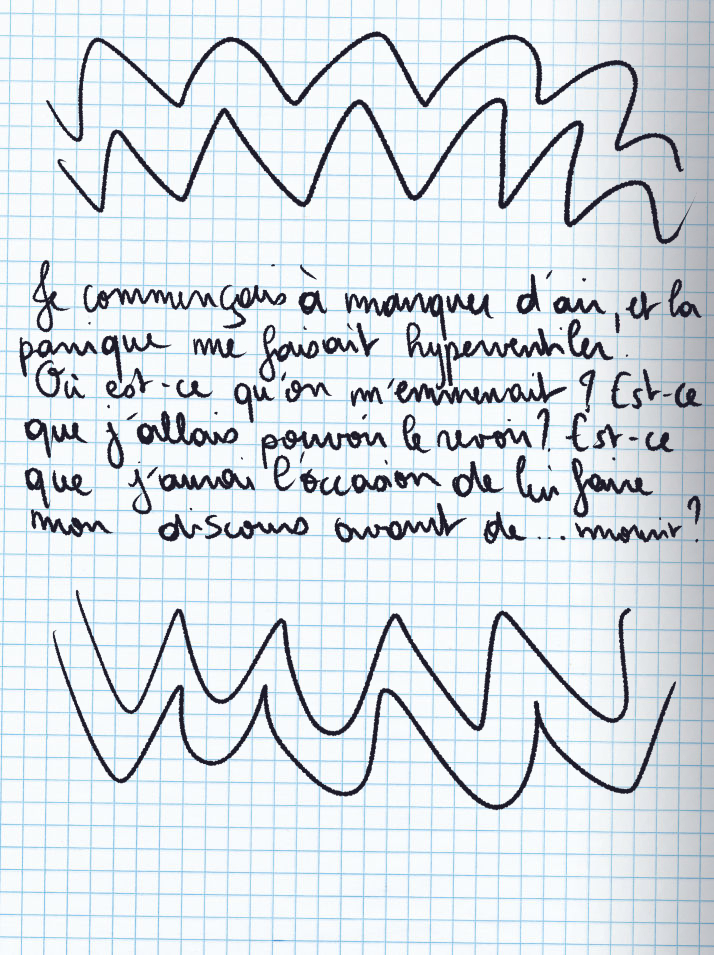 Je commençais à manquer d'air, et la
panique me faisait hyperventiler.
Où est-ce qu'on m'emmenait ? Est-ce
que j'allais pouvoir le revoir ? Est-ce
que j'aurai l'occasion de lui faire
mon discours avant de... mourir ?